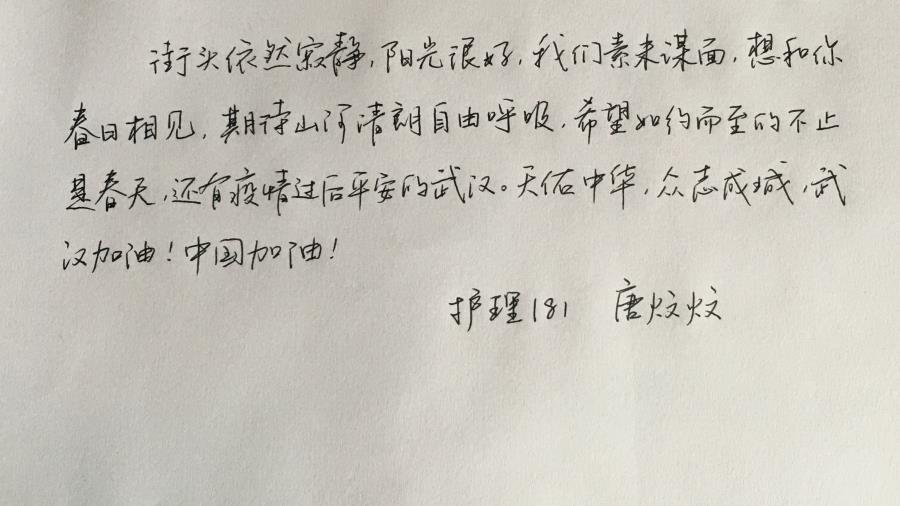 街头依然寂静，阳光很好，我们素未谋面，想和你
春日相见，期待山河清朗自由呼吸，希望如约而至的不止
是春天，还有疫情过后平安的武汉。天佑中华，众志成城，武
汉加油！中国加油！
护理181 唐炆炆